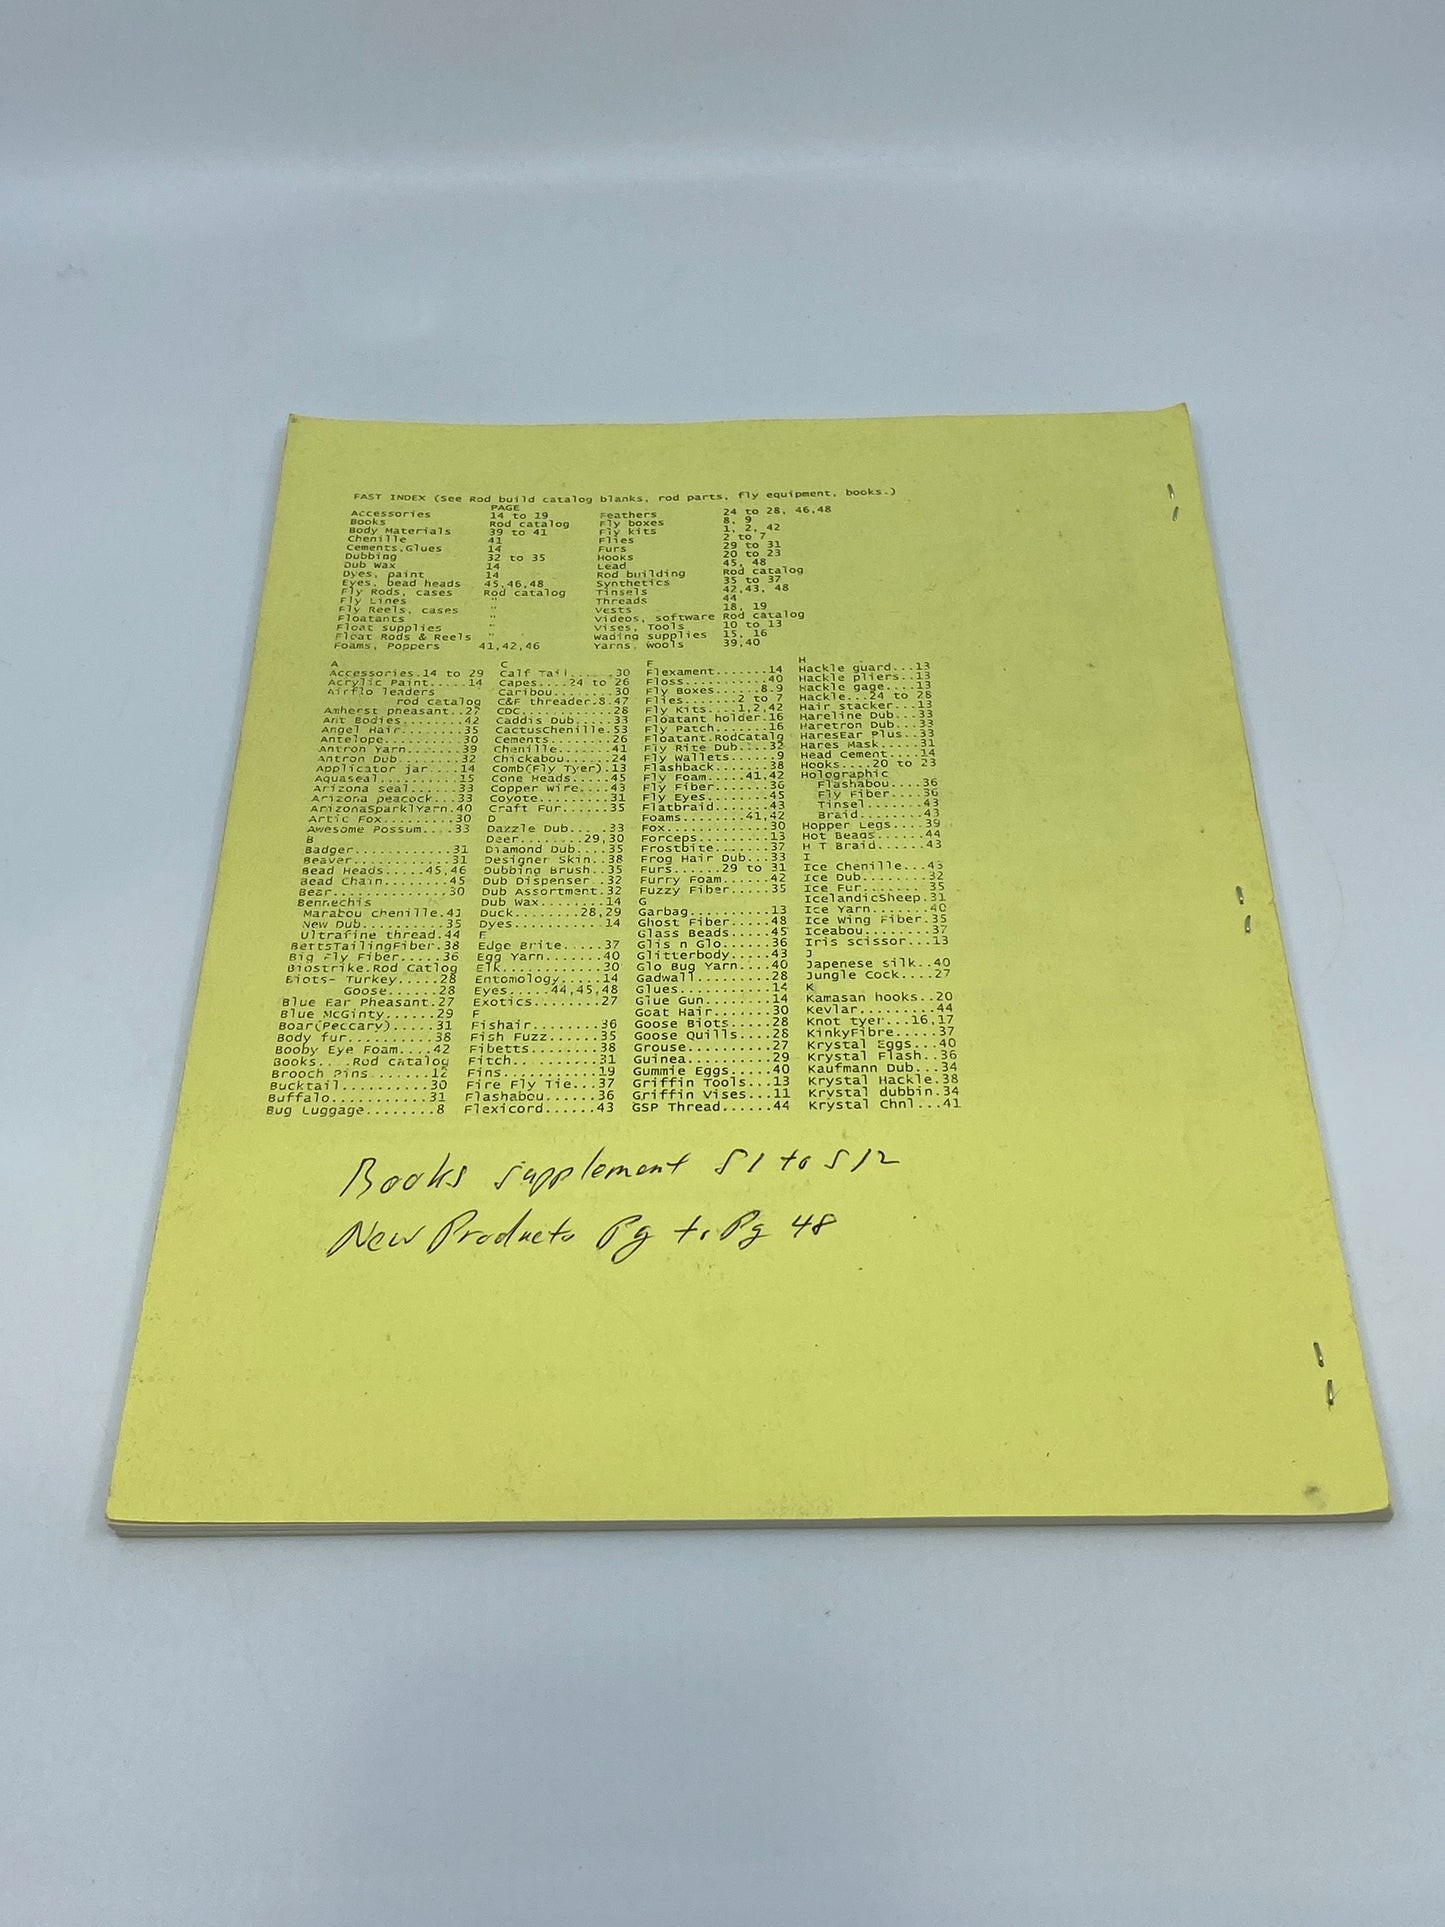 FAST INDEX (See Rod build catalog blanks, rod parts, fly equipment, books.)
PAGE
Accessories 14 to 19
Books Rod catalog
Body Materials 39 to 41
Chenille 41
Cements,Glues 14
Dubbing 32 to 35
Dub Wax 14
Dyes, paint 14
Eyes, bead heads 45,46,48
Fly Rods, cases Rod catalog
Fly Lines "
Fly Reels, cases "
Floatants "
Float supplies "
Float Rods & Reels "
Foams, Poppers 41,42,46
Feathers 24 to 28, 46,48
Fly boxes 8, 9
Fly kits 1, 2, 42
Flies 2 to 7
Furs 29 to 31
Hooks 20 to 23
Lead 45, 48
Rod building Rod catalog
Synthetics 35 to 37
Tinsels 42,43, 48
Threads 44
Vests 18, 19
Videos, software Rod catalog
Vises, Tools 10 to 13
Wading supplies 15, 16
Yarns, wools 39,40
A
Accessories.14 to 29
Acrylic Paint.....14
Airflo leaders
rod catalog
Amherst pheasant..27
Ant Bodies........42
Angel Hair........35
Antelope..........30
Antron Yarn.......39
Antron Dub........32
Applicator jar....14
Aquaseal..........15
Arizona seal......33
Arizona peacock...33
ArizonaSparklYarn.40
Artic Fox.........30
Awesome Possum....33
B
Badger............31
Beaver............31
Bead Heads.....45,46
Bead Chain........45
Bear..............30
Bennechis
Marabou chenille.41
New Dub..........35
Ultrafine thread.44
BertsTailingFiber.38
Big Fly Fiber.....36
Biostrike.Rod Catlog
Biots- Turkey.....28
Goose......28
Blue Ear Pheasant.27
Blue McGinty......29
Boar(Peccary).....31
Body fur..........38
Booby Eye Foam....42
Books....Rod catalog
Brooch Pins.......12
Bucktail..........30
Buffalo...........31
Bug Luggage........8
C
Calf Tail.........30
Capes....24 to 26
Caribou.........30
C&F threader.8.47
CDC.............28
Caddis Dub......33
CactusChenille.53
Cements.........26
Chenille........41
Chickabou.......24
Comb(Fly Tyer).13
Cone Heads......45
Copper Wire.....43
Coyote..........31
Craft Fur.......35
D
Dazzle Dub......33
Deer.........29,30
Diamond Dub.....35
Designer Skin...38
Dubbing Brush...35
Dub Dispenser...32
Dub Assortment.32
Dub Wax.........14
Duck.........28,29
Dyes............14
Edge Brite......37
Egg Yarn........40
Elk.............30
Entomology......14
Eyes......44,45,48
Exotics.........27
F
Fishair.........36
Fish Fuzz.......35
Fibetts.........38
Fitch...........31
Fins............19
Fire Fly Tie....37
Flashabou.......36
Flexicord.......43
F
Flexament.......14
Floss...........40
Fly Boxes.......8.9
Flies........2 to 7
Fly Kits....1,2,42
Floatant holder.16
Fly Patch.......16
Floatant.RodCatalg
Fly Rite Dub....32
Fly Wallets......9
Flashback.......38
Fly Foam.....41,42
Fly Fiber.......36
Fly Eyes........45
Flatbraid.......43
Foams........41,42
Fox.............30
Forceps.........13
Frostbite.......37
Frog Hair Dub...33
Furs......29 to 31
Furry Foam......42
Fuzzy Fiber.....35
G
Garbag..........13
Ghost Fiber.....48
Glass Beads.....45
Glis n Glo......36
Glitterbody.....43
Glo Bug Yarn....40
Gadwall.........28
Glues...........14
Glue Gun........14
Goat Hair.......30
Goose Biots.....28
Goose Quills....28
Grouse..........27
Guinea..........29
Gummie Eggs.....40
Griffin Tools...13
Griffin Vises...11
GSP Thread......44
H
Hackle guard...13
Hackle pliers..13
Hackle gage....13
Hackle...24 to 28
Hair stacker...13
Hareline Dub...33
Haretron Dub...33
HaresEar Plus..33
Hares Mask.....31
Head Cement....14
Hooks....20 to 23
Holographic
Flashabou....36
Fly Fiber....36
Tinsel.......43
Braid........43
Hopper Legs....39
Hot Beads......44
H T Braid......43
I
Ice Chenille...43
Ice Dub........32
Ice Fur........35
IcelandicSheep.31
Ice Yarn.......40
Ice Wing Fiber.35
Iceabou........37
Iris scissor...13
J
Japenese silk..40
Jungle Cock....27
K
Kamasan hooks..20
Kevlar.........44
Knot tyer...16,17
KinkyFibre.....37
Krystal Eggs...40
Krystal Flash..36
Kaufmann Dub...34
Krystal Hackle.38
Krystal dubbin.34
Krystal Chnl...41
Books supplement S1 to S12
New Products Pg to Pg 48